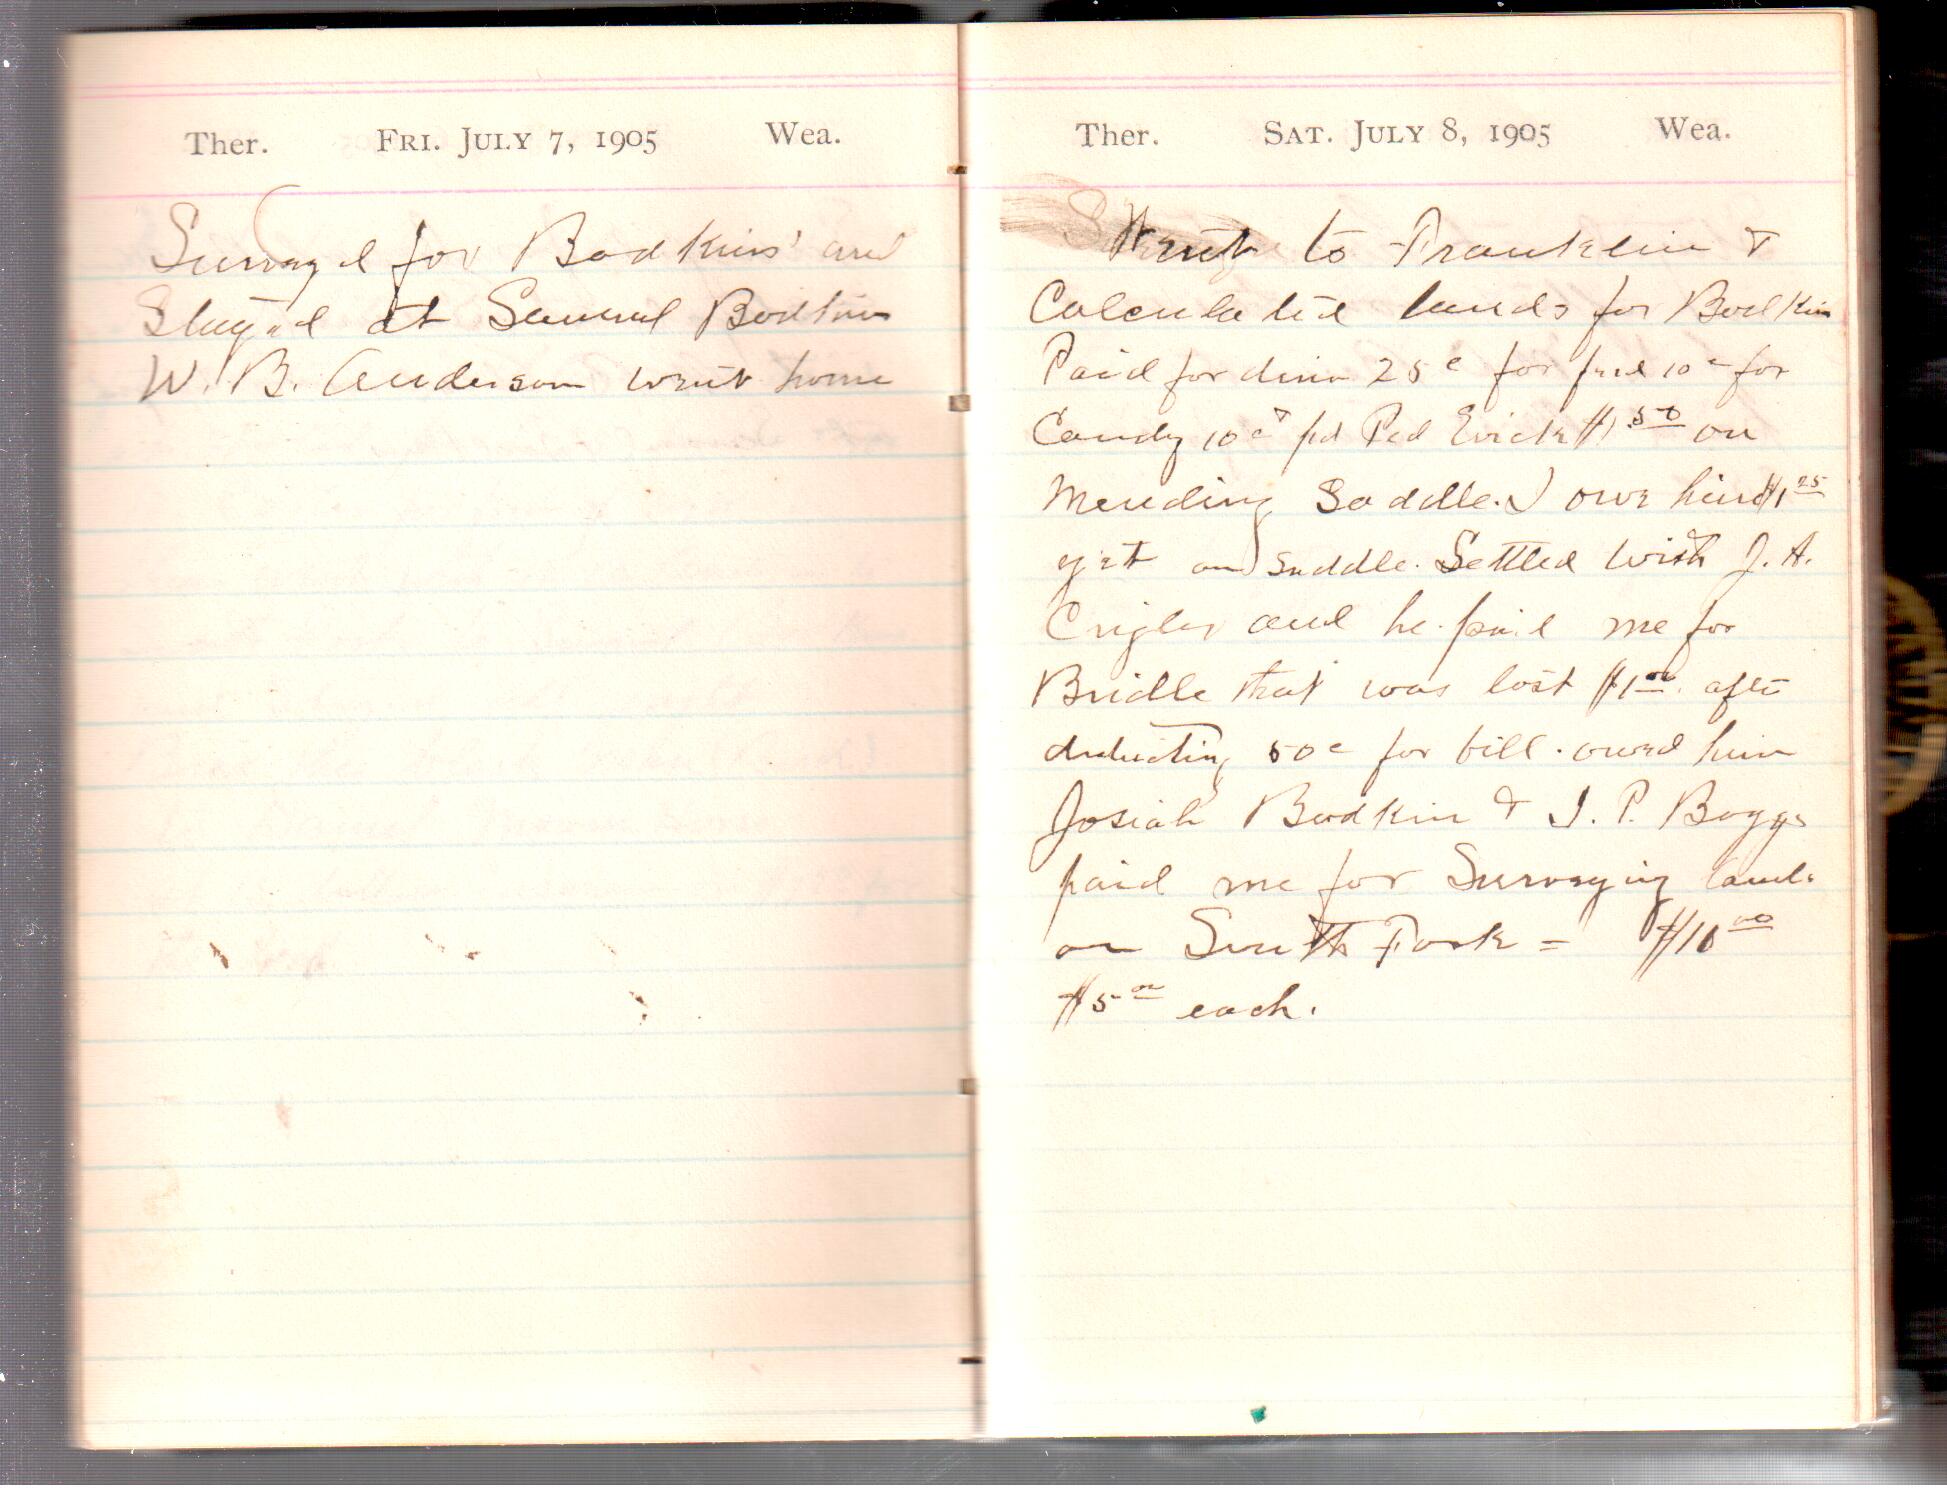 Ther. FRI. JULY 7, 1905 Wea.
Surveyed for Bodkins' and
Stayed at Samuel Bodkins
W. B. Anderson went home
Ther. SAT. JULY 8, 1905 Wea.
Went to Franklin &
Calculated lands for Bodkin
Paid for dinn 25c for feed 10c for
Candy 10c & pd Ped Evick $1.50 on
Mending Saddle. I owe him $1.25
yet on saddle. Settled with J. A.
Crigler and he paid me for
Bridle that was lost $1.00. after
deducting 50c for bill. owed him
Josiah Bodkin & I. P. Boggs
paid me for Surveying land.
on South Fork = $10.00
$5.00 each.